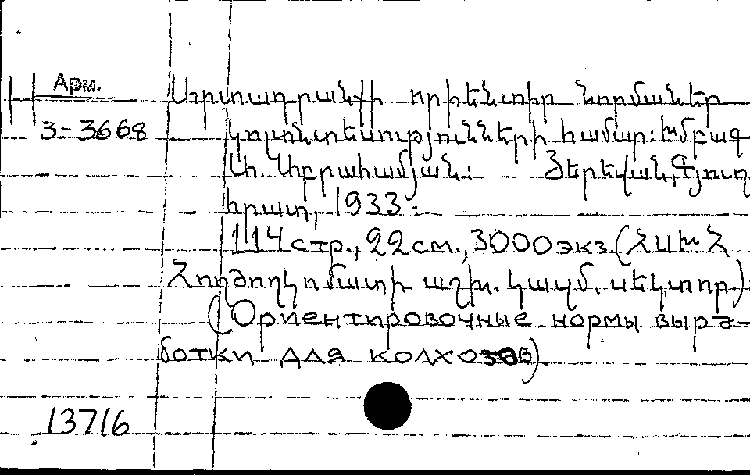 Арм.
Արտադրանքի որիենտիր նորմաներ
3-3668 կոլտնտեսությունների համար: Խմբագ
Ա. Աբրահամյան: Յերեվան, Գյուղ
հրատ, 1933.
114 стр., 22см., 3000экз (ՀԱԽՀ
Հողժողկոմատի աշխ. կազմ. սեկտոր)
(Ориентировочные нормы выра-
ботки для колхозов)
13716